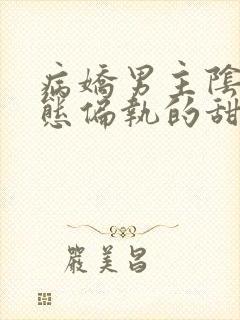 病嬌男主陰
態偏執的甜
嚴美昌